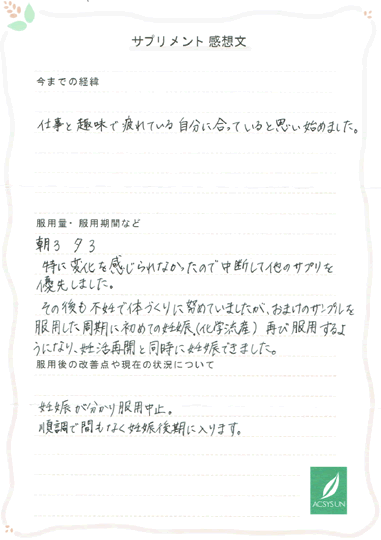 サプリメント 感想文
今までの経緯
仕事と趣味で疲れている自分に合っていると思い始めました。
服用量・服用期間など
朝3 夕3
特に変化を感じられなかったので中断して他のサプリを
優先しました。
その後も不妊で体づくりに努めていましたが、おまけのサンプルを
服用した周期に初めての妊娠、(化学流産) 再び服用するよ
うになり、妊活再開と同時に妊娠できました。
服用後の改善点や現在の状況について
妊娠が分かり服用中止。
順調で間もなく妊娠後期に入ります。
ACSYSUN